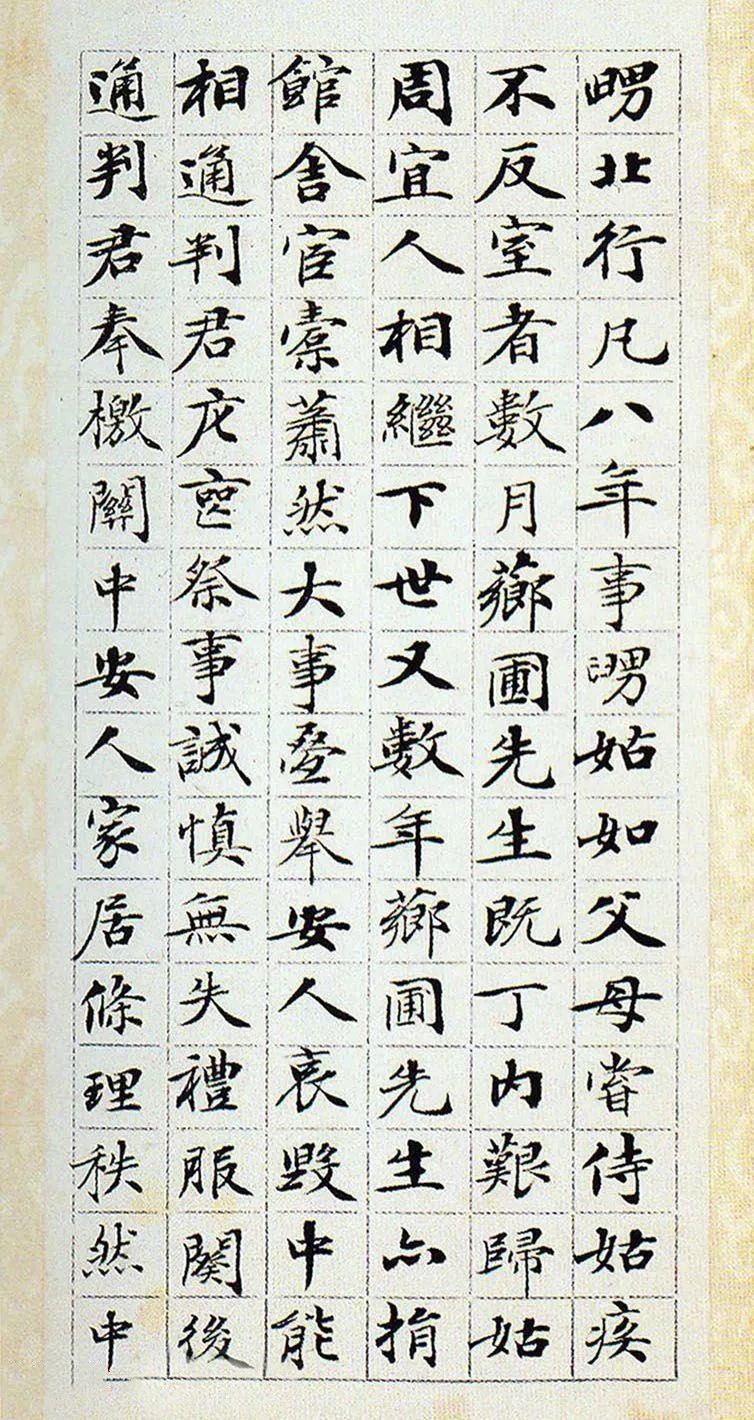 舅北行凡八年事舅姑如父母嘗侍姑疾
不反室者數月薌圃先生既丁內艱歸姑
周宜人相繼下世又數年薌圃先生亦捐
館舍宦橐蕭然大事疊舉安人哀毀中能
相通判君庀喪祭事誠慎無失禮服闋後
通判君奉檄關中安人家居條理秩然中